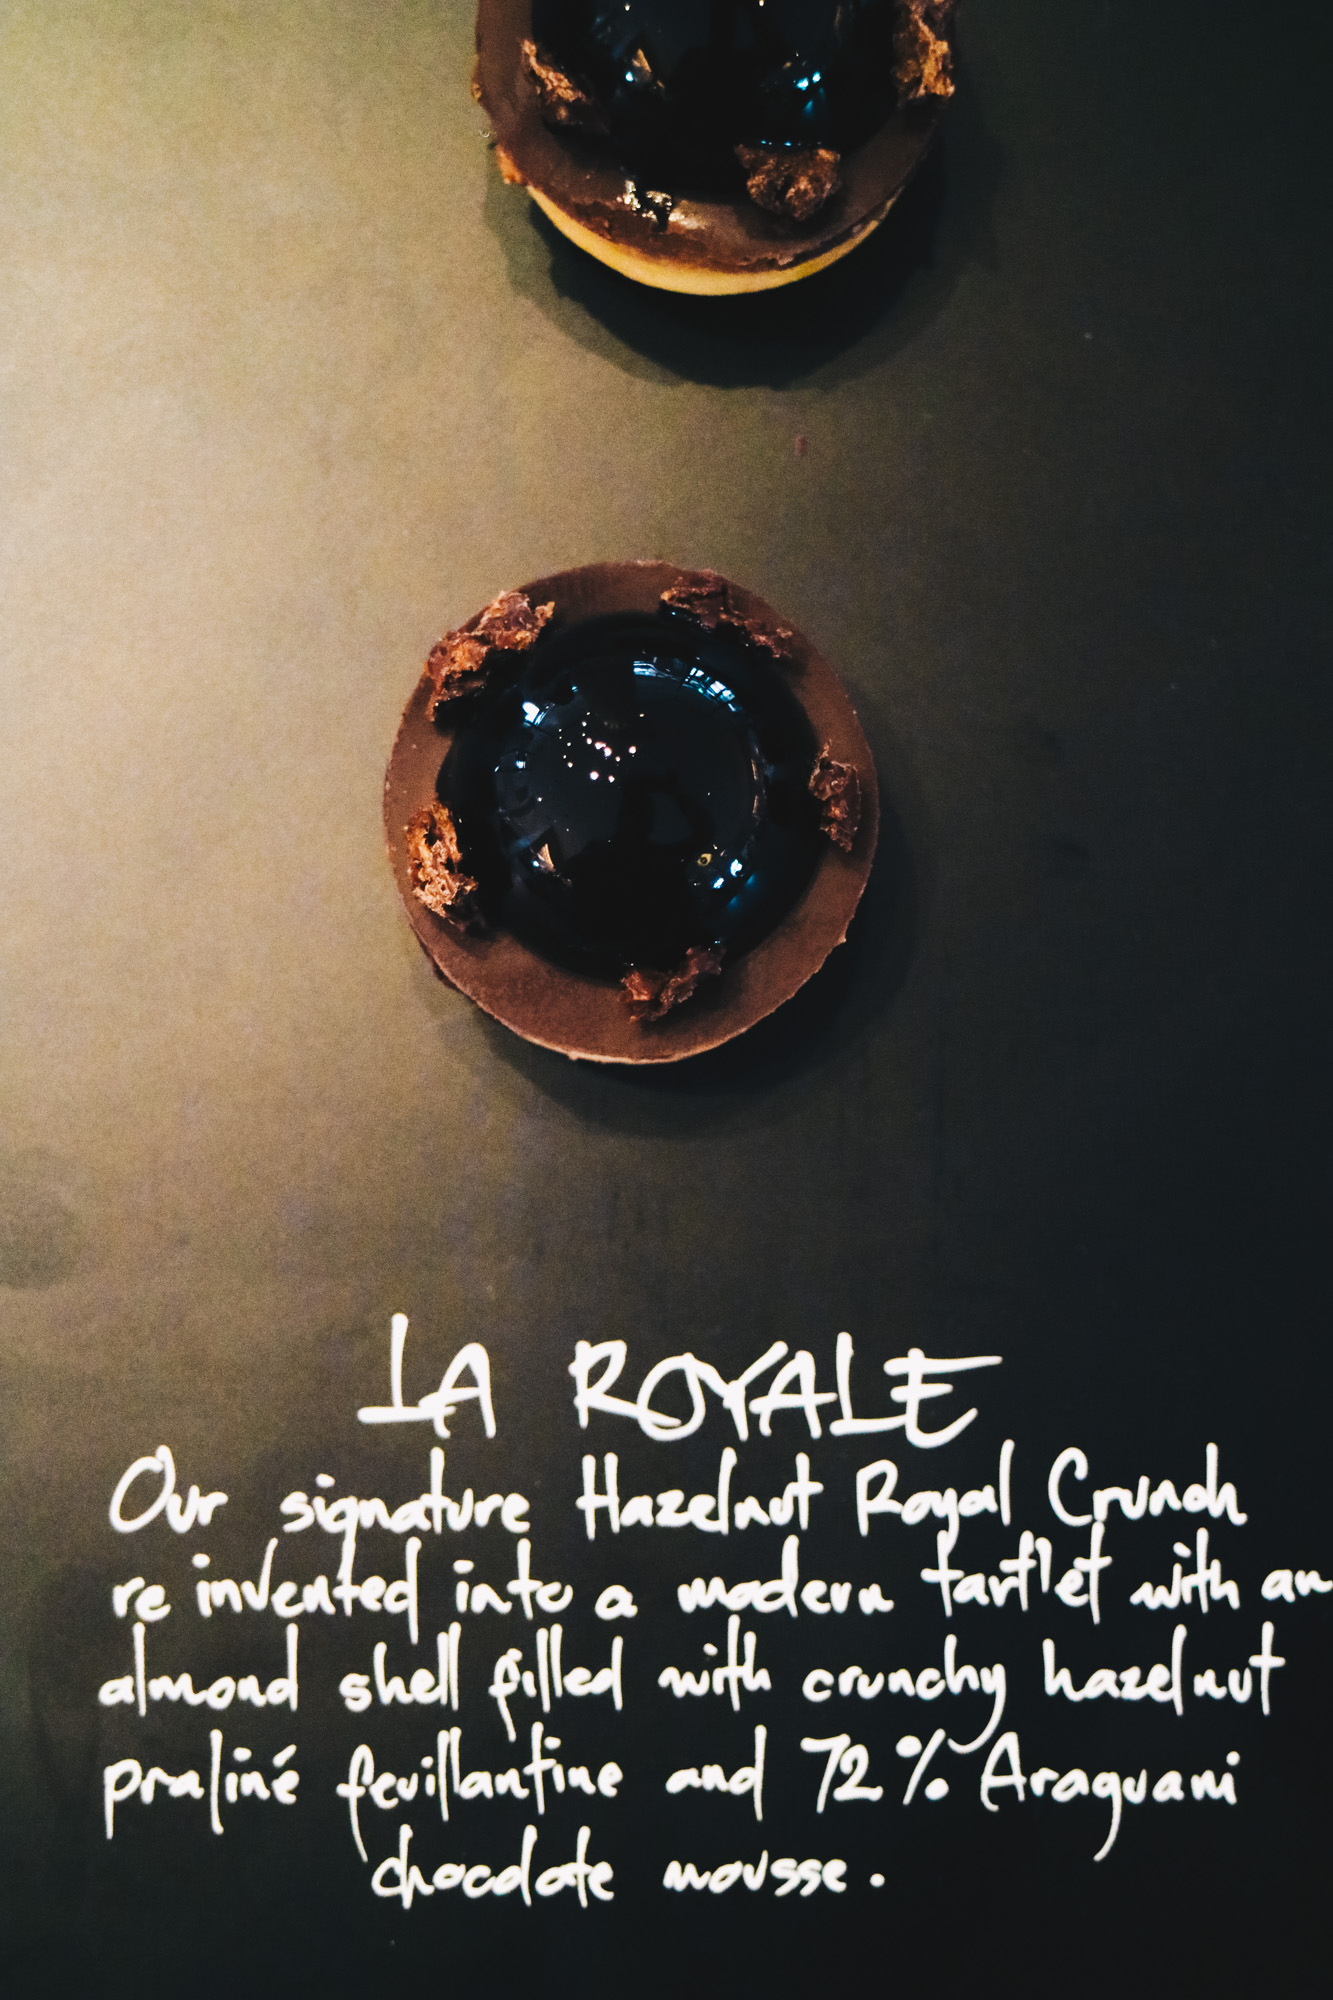 LA ROYALE
Our signature Hazelnut Royal Crunch
re invented into a modern tartlet with an
almond shell filled with crunchy hazelnut
praliné feuillantine and 72% Araguani
chocolate mousse.